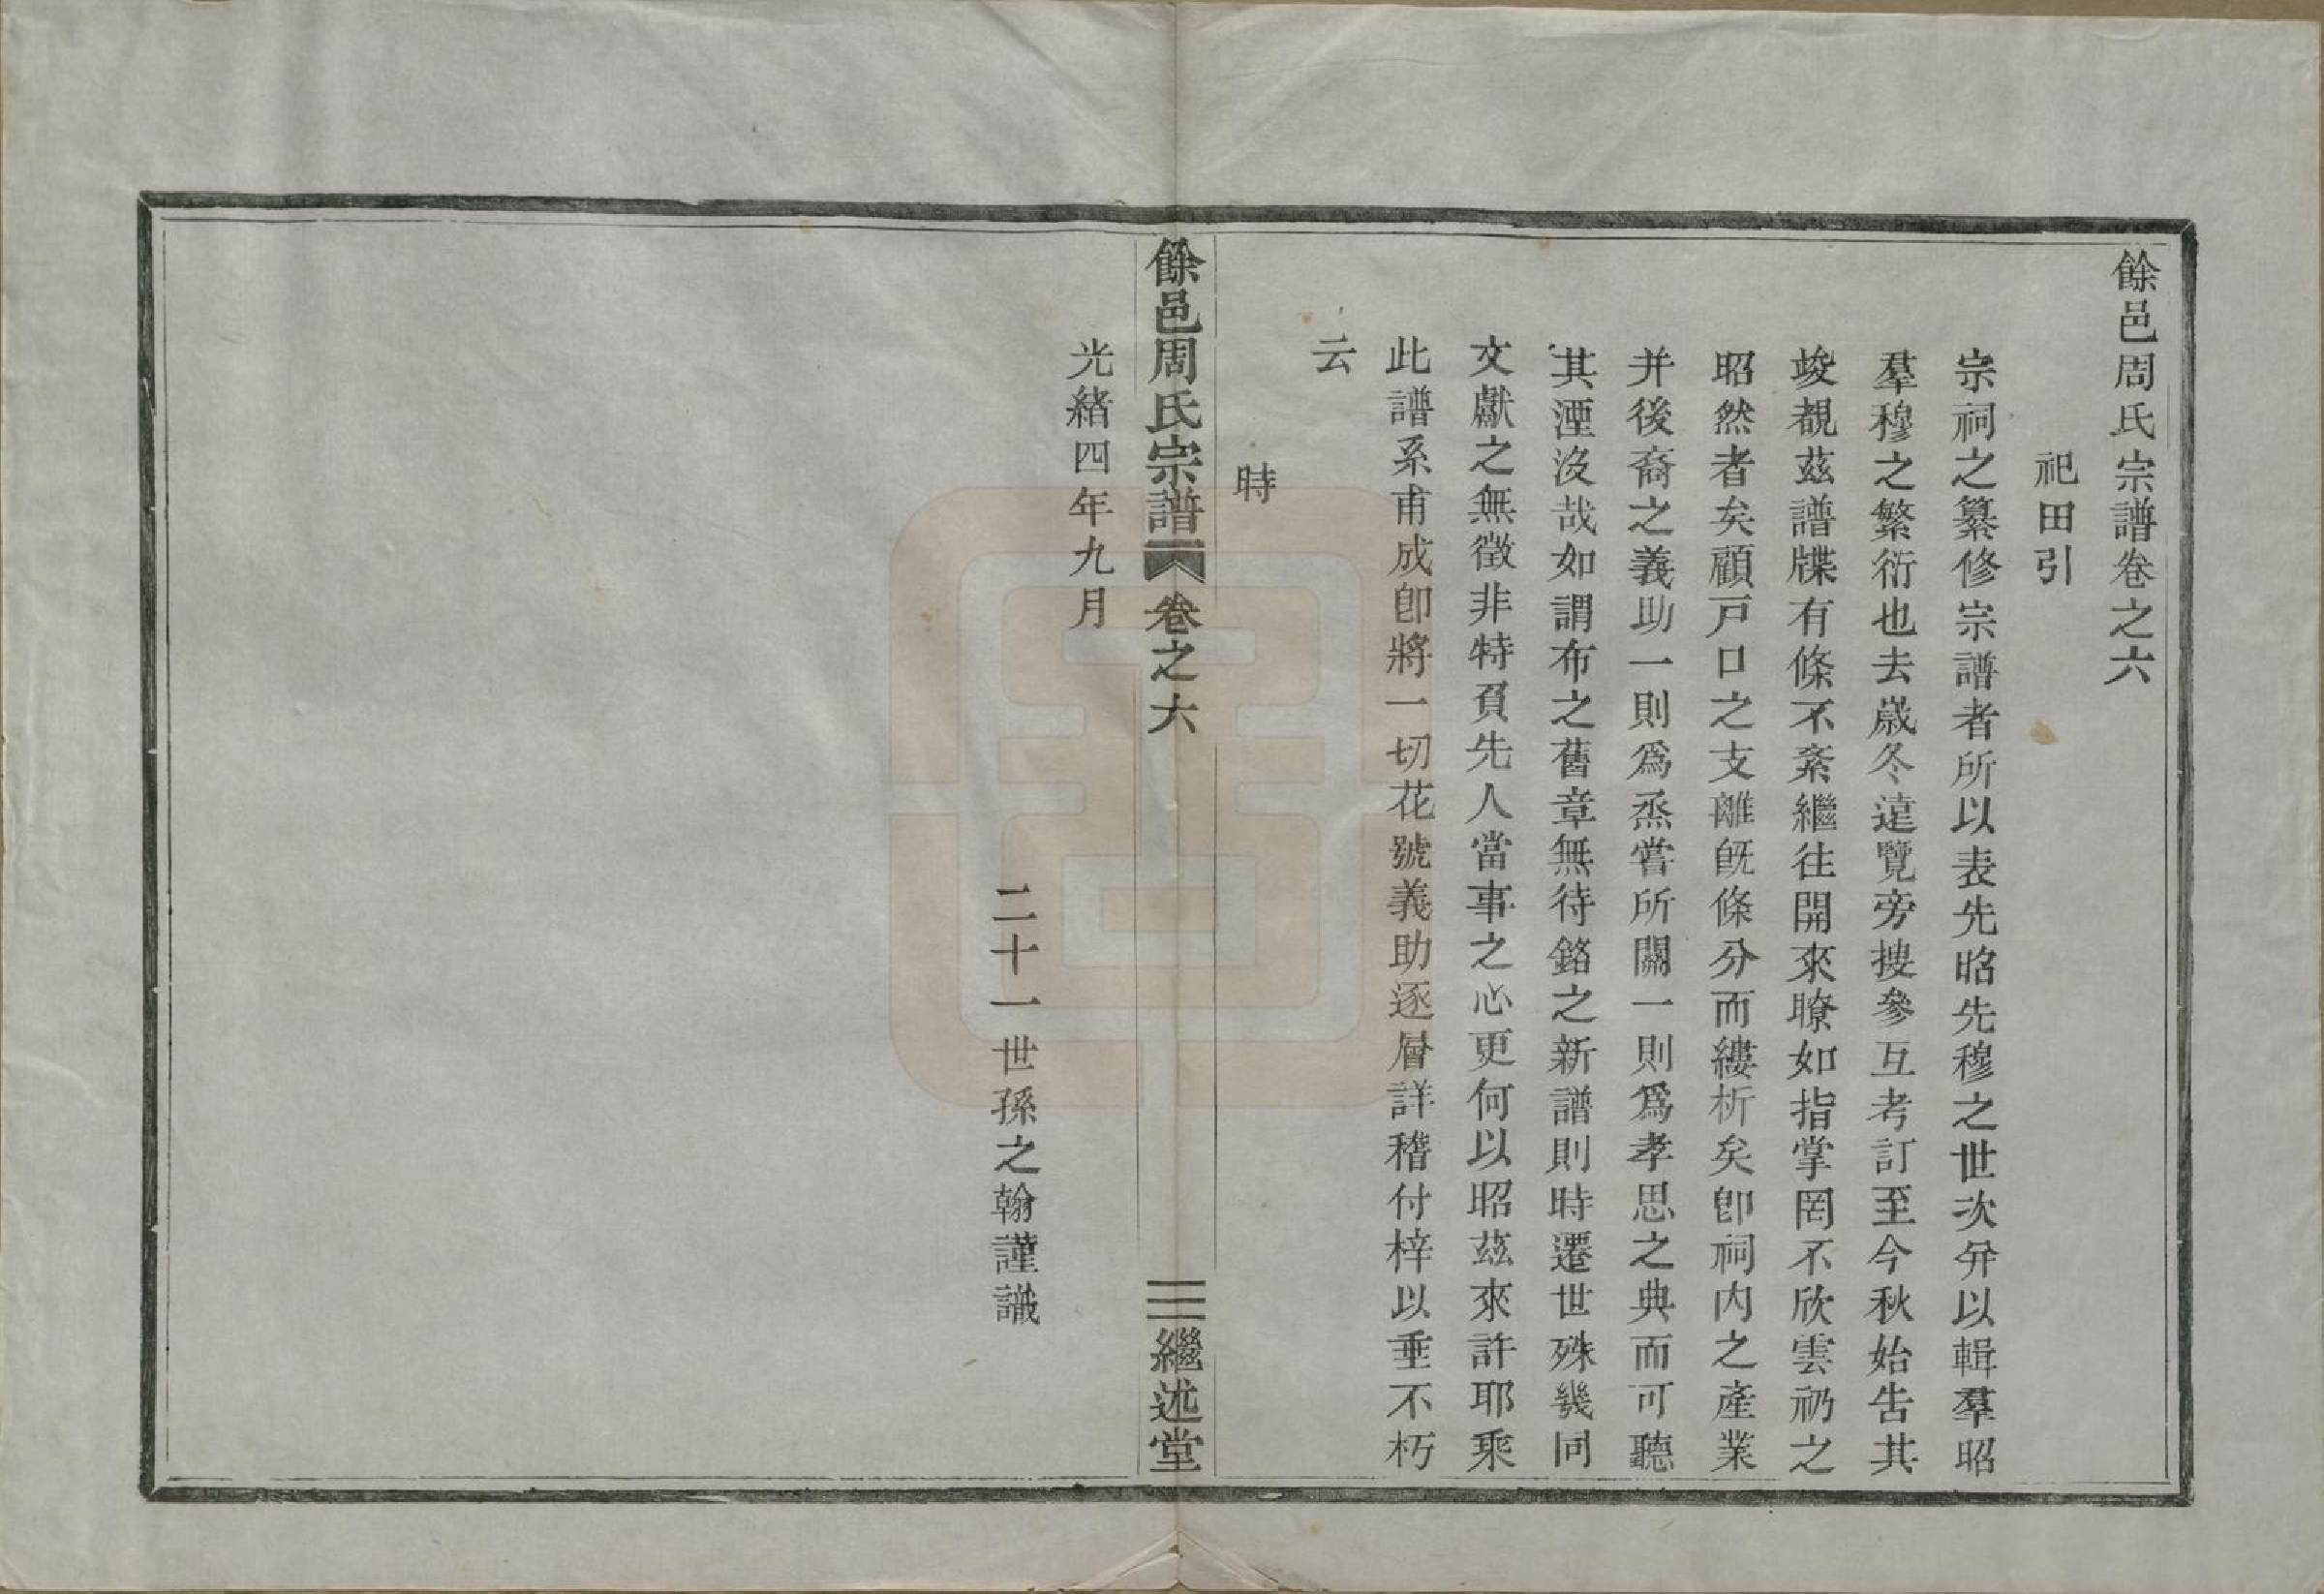 餘邑周氏宗譜卷之六
祀田引
宗祠之纂修宗譜者所以表先昭先穆之世次分以輯羣昭
羣穆之繁衍也去歲冬遠覽旁搜參互考訂至今秋始告其
竣覩茲譜牒有條不紊繼往開來瞭如指掌罔不欣雲礽之
昭然者矣顧戸口之支離旣條分而縷析矣卽祠内之產業
并後裔之義助一則爲烝嘗所關一則爲孝思之典而可聽
其湮沒哉如謂布之舊章無待銘之新譜則時遷世殊幾同
文獻之無徵非特負先人當事之心更何以昭茲來許耶乘
此譜系甫成卽將一切花號義助逐層詳稽付梓以垂不朽
云
時
餘邑周氏宗譜 卷之六 三 繼述堂
光緒四年九月
二十一世孫之翰謹識